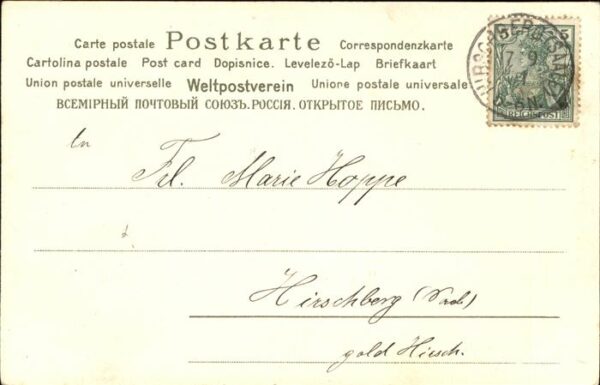 Carte postale Postkarte Correspondenzkarte
Cartolina postale Post card Dopisnice. Levelező-Lap Briefkaart
Union postale universelle Weltpostverein Unione postale universale
ВСЕМІРНЫЙ ПОЧТОВЫЙ СОЮЗЪ. РОССІЯ. ОТКРЫТОЕ ПИСЬМО.
REICHSPOST
An
Frl. Marie Hoppe
Hirschberg
gold Hirsch.